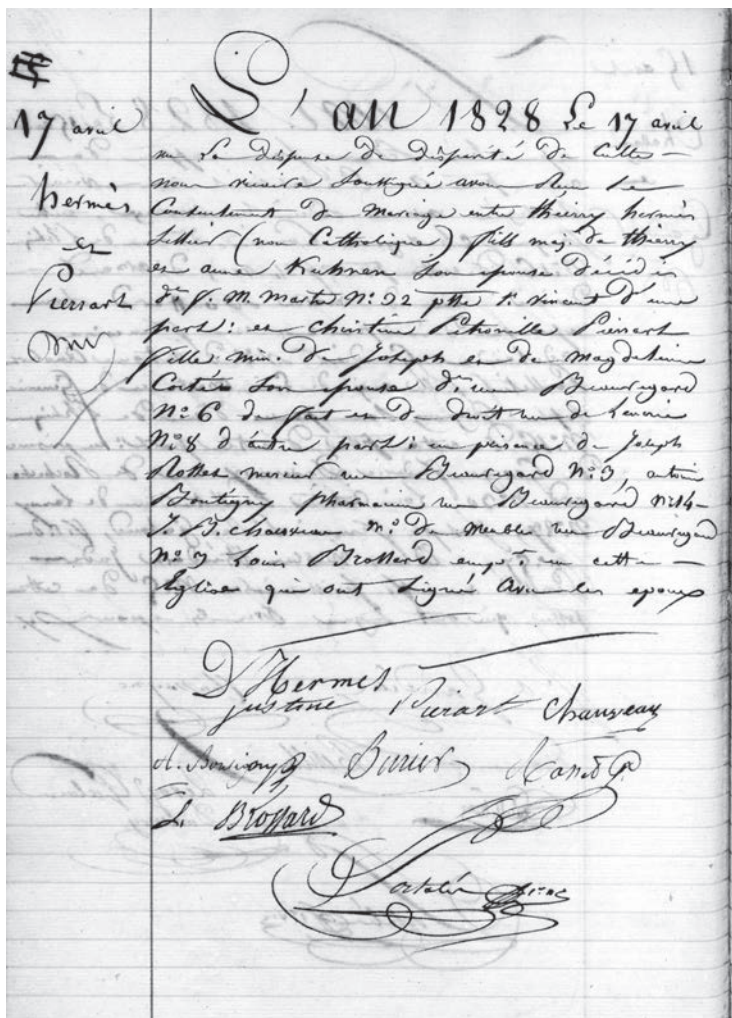 17 avril
hermès
et
Pierrart
L'an 1828 Le 17 avril
vu La dispense de disparité de culte —
nous vicaire Soussigné avons Recu Le
Consentement De Mariage entre thierry hermès
Sellier (non Catholique) fils maj. de thierry
et anne Kuhnen Son epouse Décédés
N: 32 st. vincent D'une
part: et christine Petronille Pierrart
fille min. De Joseph et de magdeleine
Son epouse Beauregard
N: 6 de fait et De droit rue de
N: 8 d'autre part: en présence de Joseph
mercier rue Beauregard N: 3,
Boutigny pharmacien rue Beauregard N: 14 —
J. B. chauveau Md. De Meuble rue Beauregard
N: 3 Louis Brossard empé. en cette —
Eglise qui ont Signé Avec les epoux
D Hermes
justine Pierart Chauveau
L. Brossard